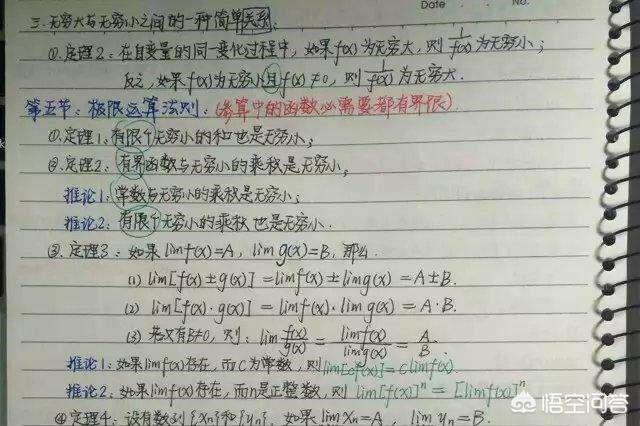 Date
No.
三.无穷大与无穷小之间的一种简单关系:
①.定理2:在自变量的同一变化过程中,如果f(x)为无穷大,则 1/f(x) 为无穷小;
反之,如果f(x)为无穷小且f(x)≠0,则 1/f(x) 为无穷大.
第五节:极限运算法则:(参算中的函数必需要都有界限)
①.定理1:有限个无穷小的和也是无穷小;
②.定理2:有界函数与无穷小的乘积是无穷小;
推论1:常数与无穷小的乘积是无穷小;
推论2:有限个无穷小的乘积也是无穷小.
③.定理3:如果limf(x)=A, lim g(x)=B,那么
(1) lim[f(x)±g(x)]=limf(x)±limg(x)=A±B.
(2) lim[f(x)·g(x)]=limf(x)·lim g(x)=A·B.
(3) 若又有B≠0,则:lim f(x)/g(x) = limf(x)/limg(x) = A/B
推论1:如果limf(x)存在,而C为常数,则lim[cf(x)]=climf(x)
推论2:如果limf(x)存在,而n是正整数,则 lim[f(x)]ⁿ=[limf(x)]ⁿ
④定理4:设有数列{xn}和{yn},如果lim xn=A, lim yn=B.
悟空问答